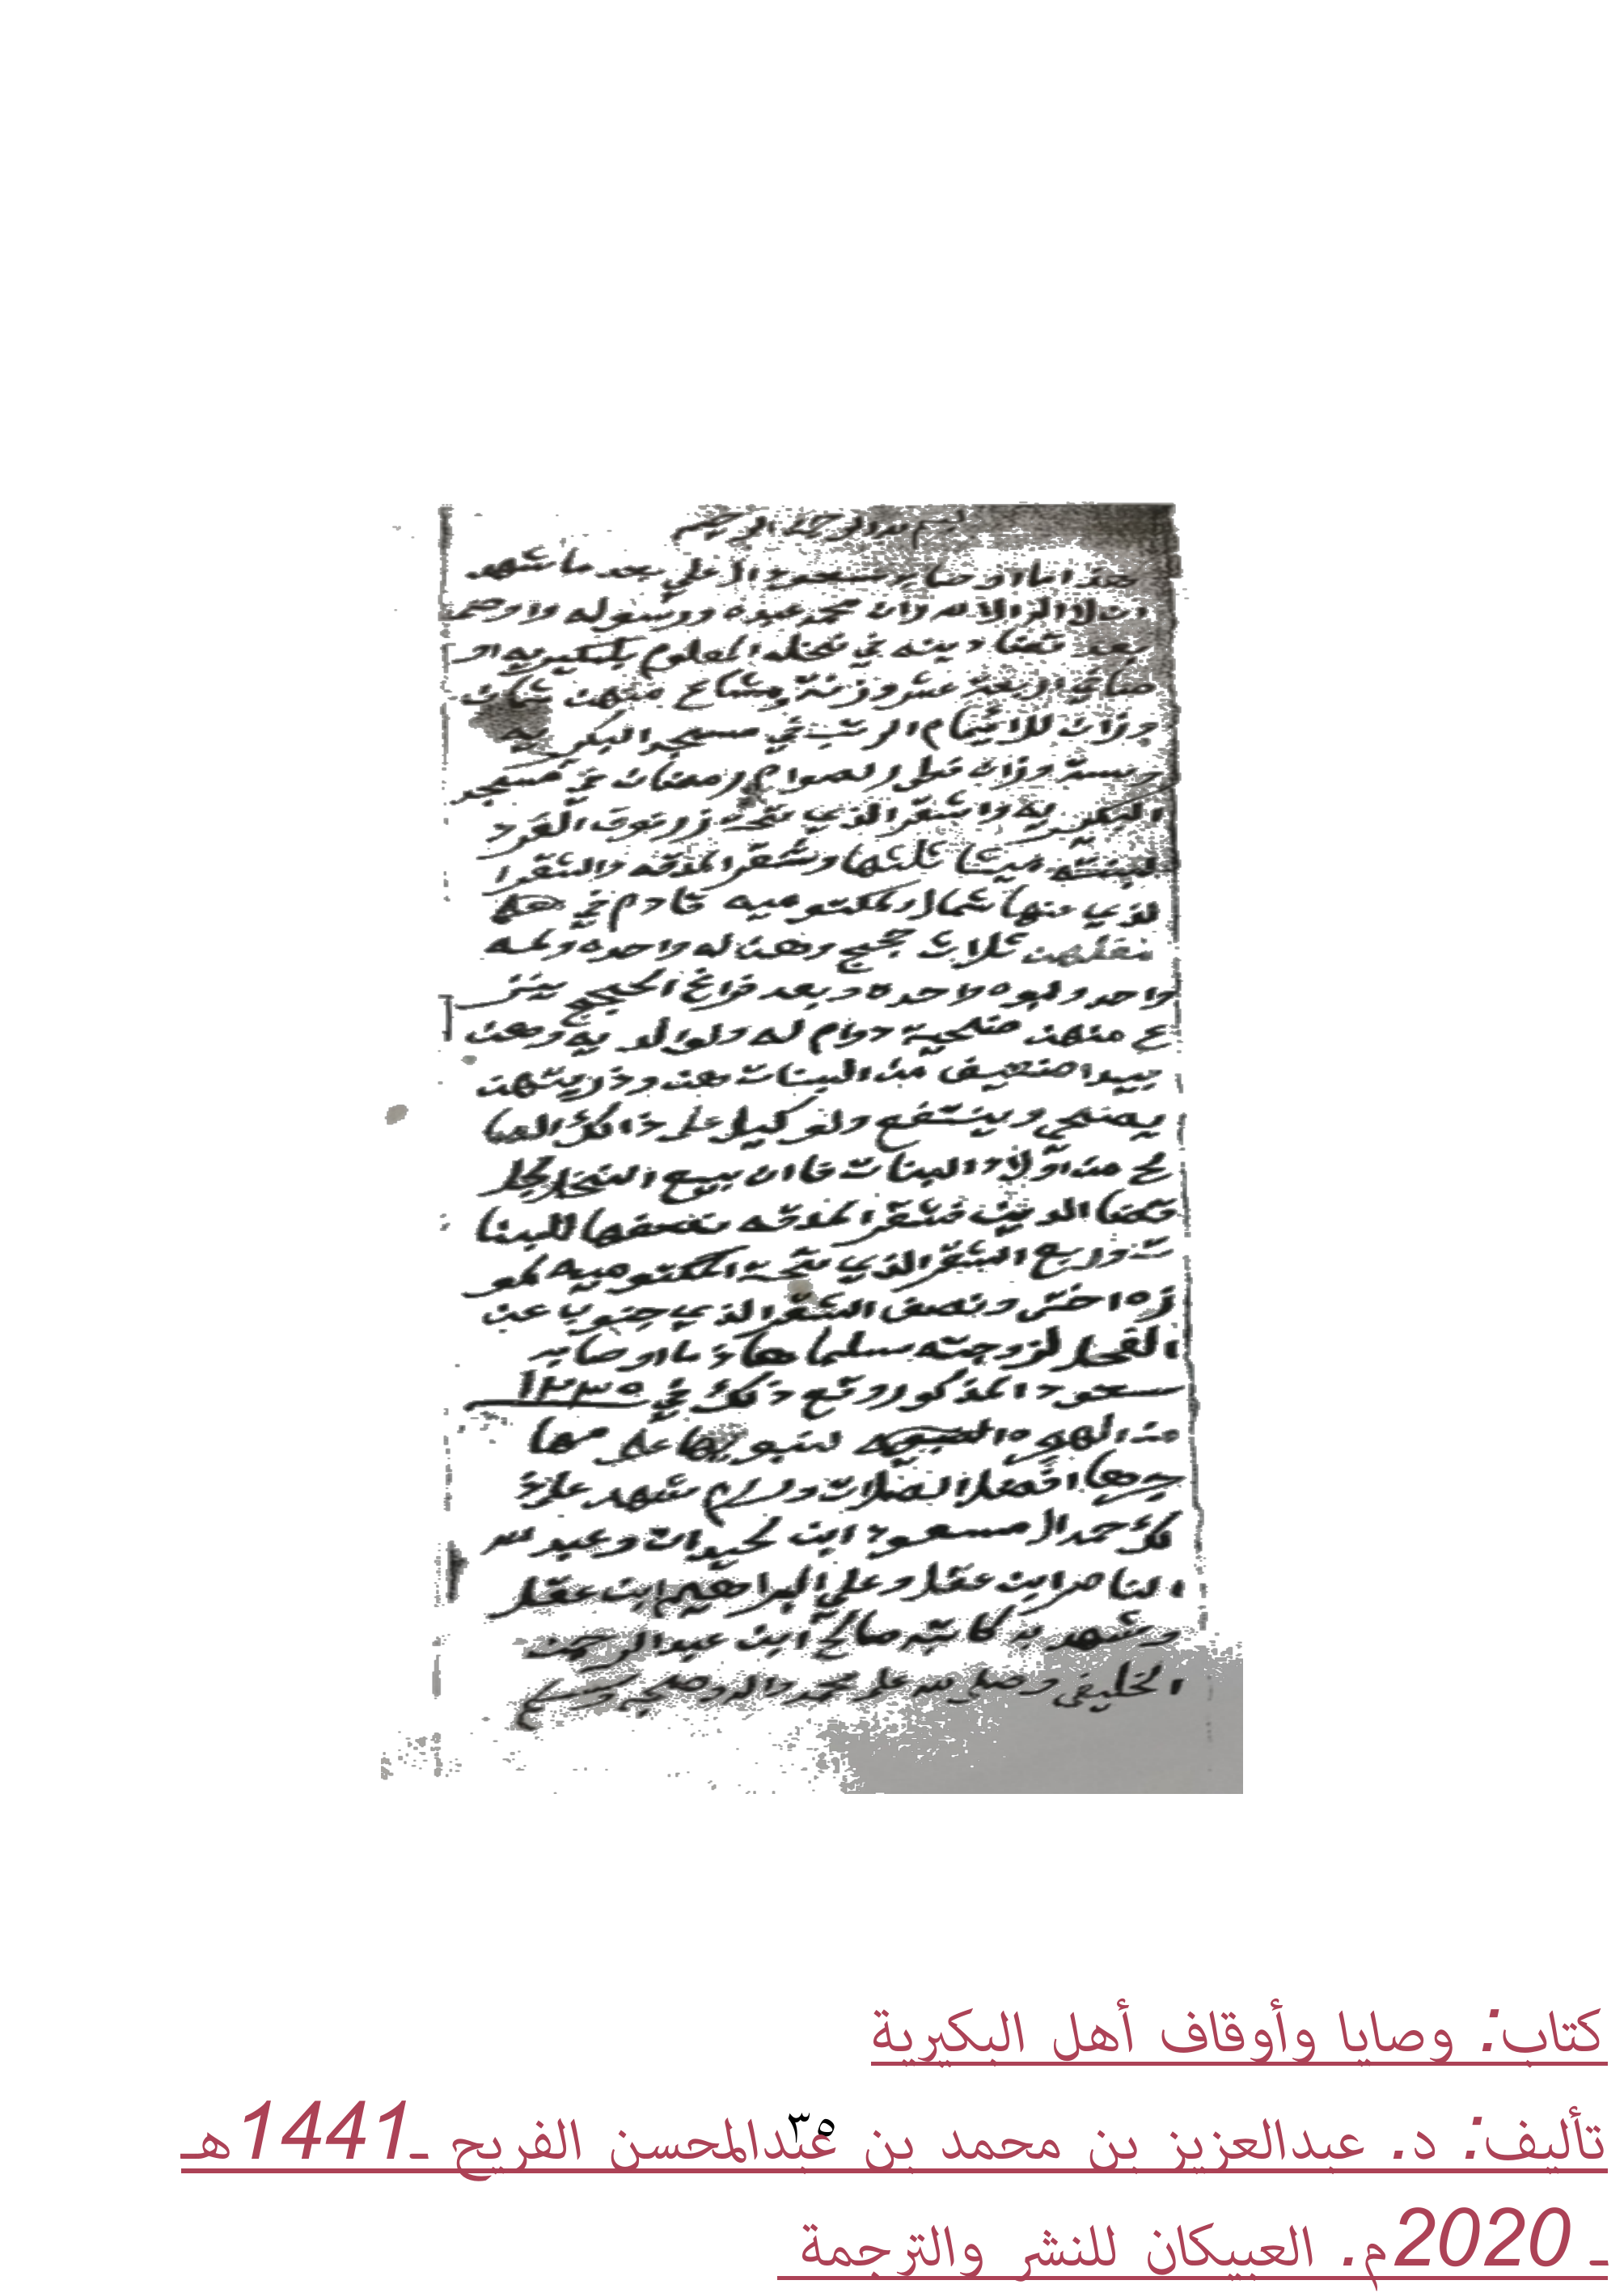 بسم الله الرحمن الرحيم
هذا ما اوصا به مسعود ال علي بعد ما شهد
ان لا اله الا الله وان محمد عبده ورسوله واوصى
بعد قضا دينه في نخله المعلوم بلبكيريه او
صا في اربعة عشر وزنة مشاع منهن ثمان
وزان للامام الرتب في مسجد البكيريه
وستة وزان فطر لصوام رمضان في مسجد
البكيريه والشقر الذي تحت زرنوق الفرد
ثلثها وشقرا لمدقه والشقرا
لذي منها شمال ومكتوميه قادم في
ثلاث حجج وهن له واحده ولمه
واحده ولبوه واحده وبعد فراغ الحجج ينز
ع منهن ضحية دوام له ولوالديه وهن
بيد اضعيف من البنات هن وذريتهن
يضحي وينتفع ولوكيل على ذالك الصا
لح من اولاد البنات فا ان بيع النخل لجل
قضا الدين فشقرا لمدقه نصفها للبنا
ت وربع الشقر الذي تحت المكتوميه لمو
زه اختي ونصف الشقر الذي جنوب عن
الفحل لزوجته سلما هاذ ما اوصا به
مسعود المذكور وقع ذلك في ١٢٣٥
من الهجره النبويه لنبويها على مها
جرها افضل الصلات وسلام شهد على ذ
لك حمد ال مسعود ابن لحيدان وعبد الله
الناصر ابن عقل وعلي البراهيم ابن عقل
وشهد به كاتبه صالح ابن عبد الرحمن
الخليفي وصلى الله على محمد واله وصحبه وسلم
كتاب: وصايا وأوقاف أهل البكيرية
تأليف: د. عبدالعزيز بن محمد بن عبدالمحسن الفريح ـ1441هـ
ـ 2020م. العبيكان للنشر والترجمة
٣٥